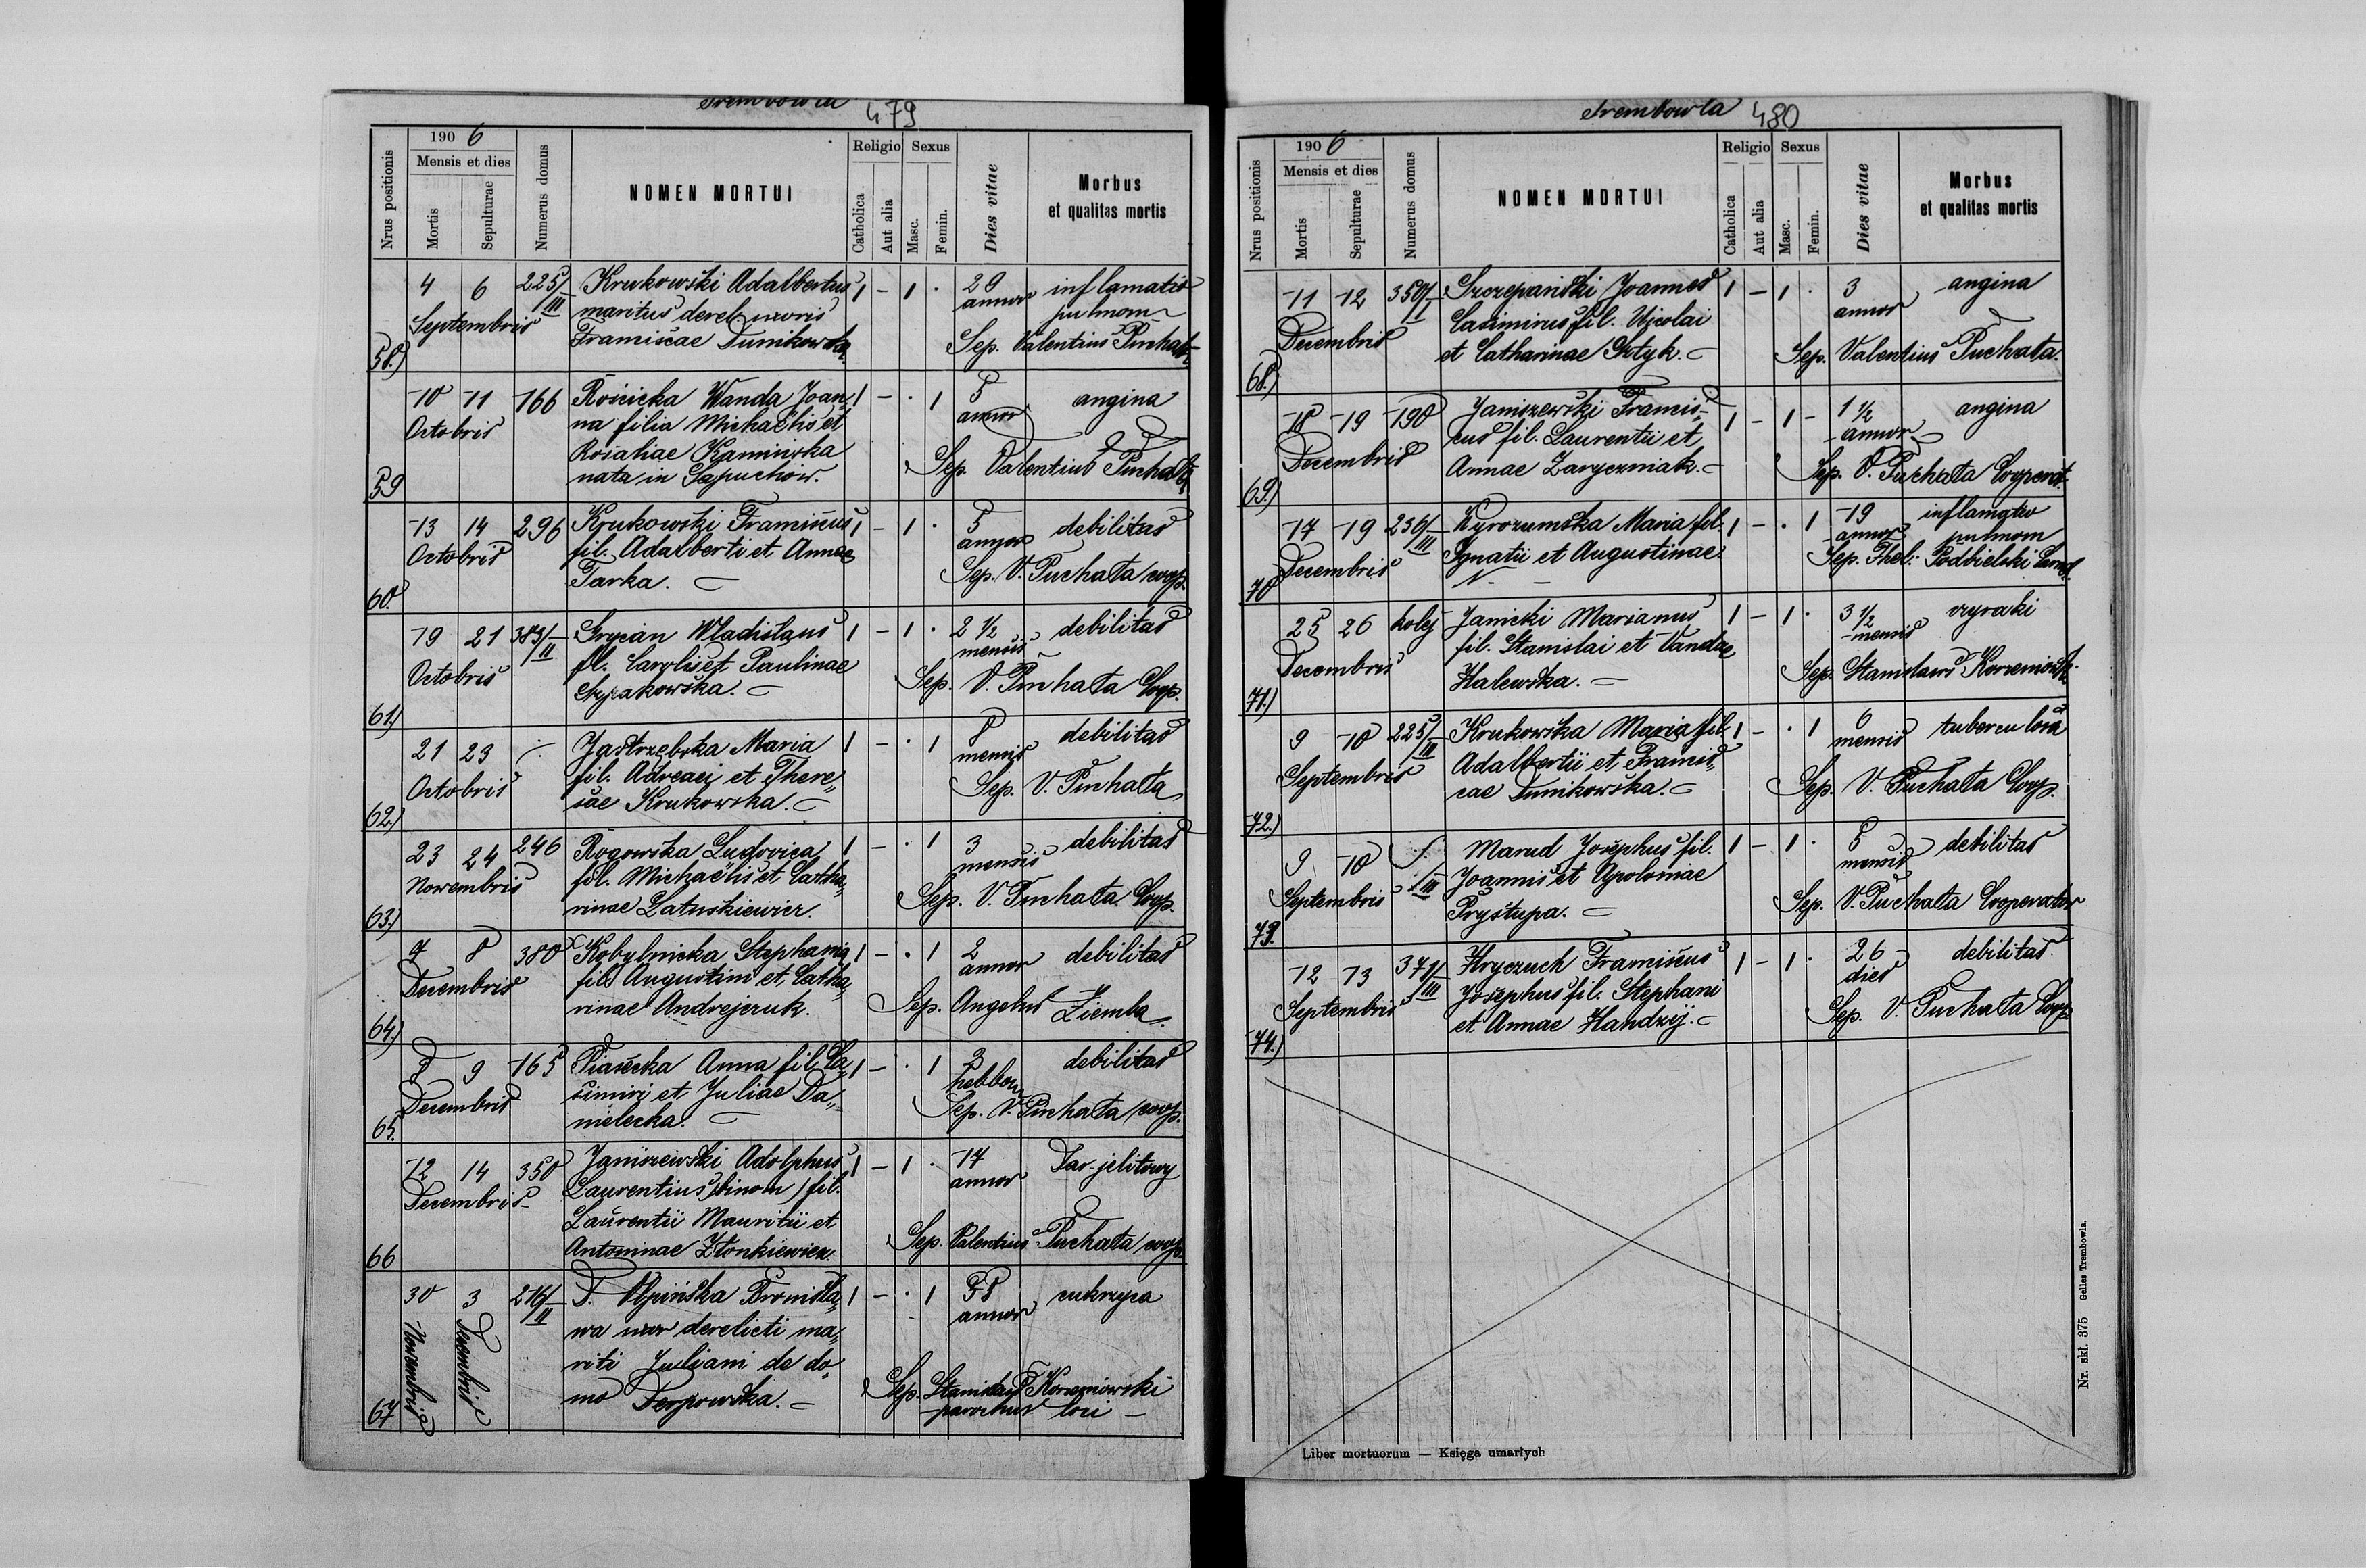 Trembowla 479
Nrus positionis
1906
Mensis et dies
Mortis
Sepulturae
Numerus domus
NOMEN MORTUI
Religio
Catholica
Aut alia
Sexus
Masc.
Femin.
Dies vitae
Morbus
et qualitas mortis
58.) 4 6 225/III Krukowski Adalbertus 1 - 1 . 29 inflamatio
Septembris maritus derel. uxoris annor pulmom
Franciscae Dunikowska Sep. Valentius Puchała
59 10 11 166 Rościcka Wanda Joan„ 1 - . 1 5 angina
Octobris na filia Michaëlis et annor
Rosaliae Kamińska Sep. Valentius Puchała
nata in Łapuchów.
60. 13 14 296 Krukowski Franciscus 1 - 1 . 5 debilitas
Octobris fil. Adalberti et Annae annor
Tarka. Sep. V. Puchała coop.
61.) 19 21 383/II Grycan Wladislaus 1 - 1 . 2 ½ debilitas
Octobris fil. Caroli et Paulinae mensis
Sep. V. Puchała Coop.
62.) 21 23 Jastrzębska Maria 1 - . 1 8 debilitas
Octobris fil. Adreaei et There„ mensis
sae Krukowska. Sep. V. Puchała
63.) 23 24 246 Rogowska Ludovica 1 - . 1 3 debilitas
Novembris fil. Michaëlis et Catha„ mensis
rinae Łatuskiewicz. Sep. V. Puchała Coop.
64.) 7 8 380 Kobylnicka Stephania 1 - . 1 2 debilitas
Decembris fil. Augustini et Catha„ annor
rinae Andrejczuk. Sep. Angelus Ziemba.
65. 8 9 165 Piasecka Anna fil. Ca„ 1 - . 1 2 debilitas
Decembris simiri et Juliae Da„ hebdom
nielecka. Sep. V. Puchała coop.
66 12 14 350 Janiszewski Adolphus 1 - 1 . 17
Decembris Laurentius (binom) fil. annor
Laurentii Mauritii et
Antoninae Złonkiewicz. Sep. Valentius Puchała coop.
67 30 3 216/II Bronisła„ 1 - . 1 58 cukrzyca
Novembris Decembris wa uxor derelicti ma„ annor
riti Juliani de do„
mo Sep. Stanislaus Korzeniowski
parochus loci
Trembowla 480
Nrus positionis
1906
Mensis et dies
Mortis
Sepulturae
Numerus domus
NOMEN MORTUI
Religio
Catholica
Aut alia
Sexus
Masc.
Femin.
Dies vitae
Morbus
et qualitas mortis
68.) 11 12 350/I Szczepański Joannes 1 - 1 . 3 angina
Decembris Casimirus fil. Nicolai annor
et Catharinae Sep. Valentius Puchała.
69.) 18 19 190 Janiszewski Francis„ 1 - 1 - 1 ½ angina
Decembris cus fil. Laurentii et annor
Annae Zaryczniak. Sep. V. Puchała Cooperat.
70 17 19 236/III Wyrozumska Maria fil. 1 - . 1 19 inflamatio
Decembris Ignatii et Augustinae annor pulmom
N. - Sep. Thel. Podbielski
71.) 25 26 kolej Janicki Marianus 1 - 1 . 3 ½ czyraki
Decembris fil. Stanislai et Vandae mensis
Halewska. Sep. Stanislaus Korzeniowsk.
72.) 9 10 225/III Krukowska Maria fil. 1 - . 1 6 tuberculosa
Septembris Adalbertii et Francis„ mensis
cae Dunikowska. Sep. V. Puchała Coop.
73. 9 10 ./III Marud Josephus fil. 1 - 1 . 5 debilitas
Septembris Joannis et Apoloniae mensis
Prystupa. Sep. V. Puchała Cooperator
74.) 12 13 371/III Hryczuch Franciscus 1 - 1 . 26 debilitas
Septembris Josephus fil. Stephani dies
et Annae Handzij. Sep. V. Puchała Coop
Liber mortuorum — Księga umarłych
Nr. skł. 375 Gelles Trembowla.